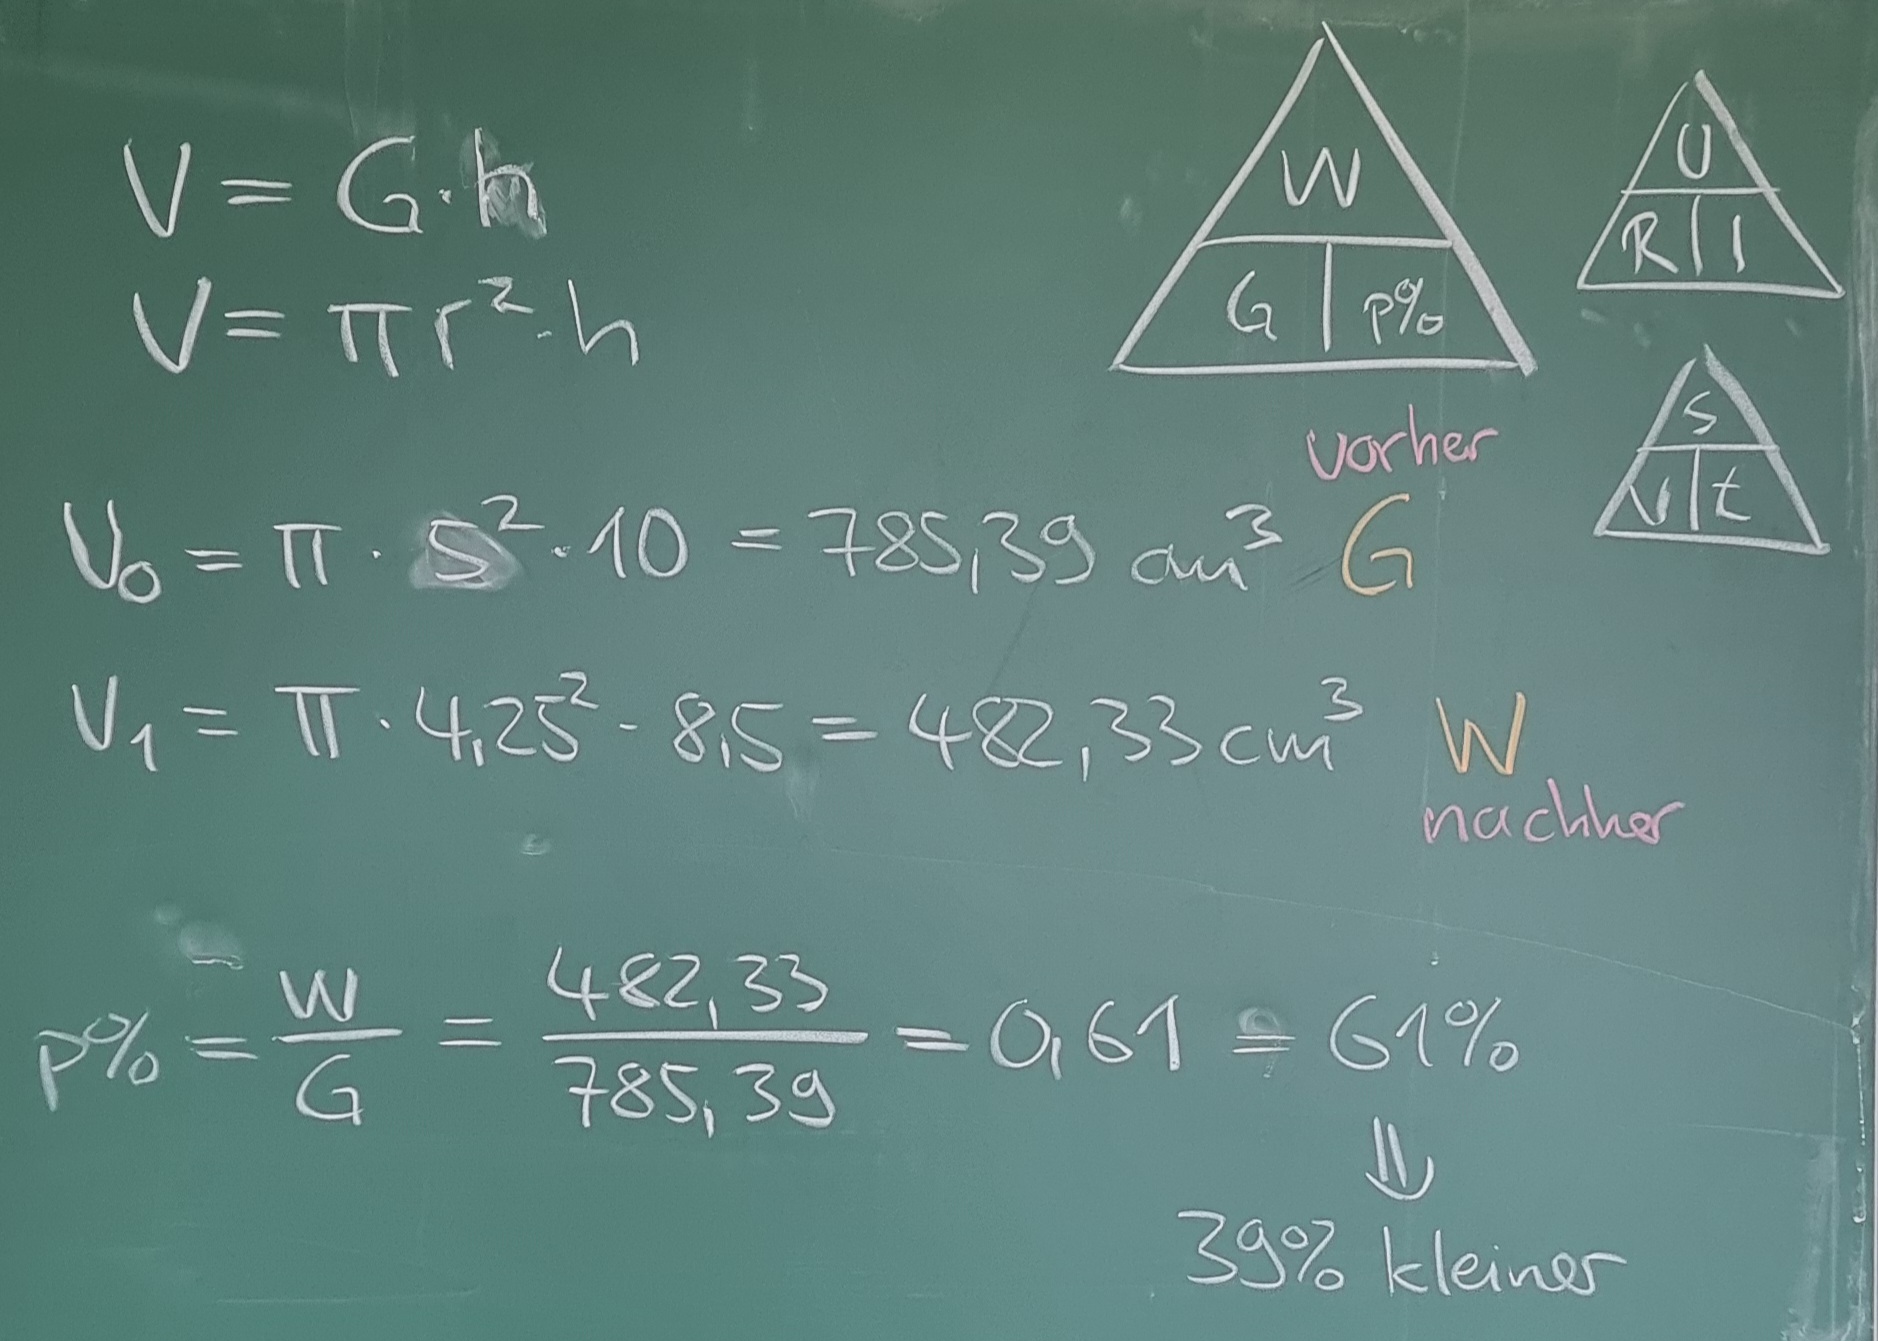 V = G · h
V = π r² · h
W
G | p%
U
R | I
S
V | t
vorher
V₀ = π · 5² · 10 = 785,39 cm³ G
V₁ = π · 4,25² · 8,5 = 482,33 cm³ W
nachher
p% = W/G = 482,33/785,39 = 0,61 = 61%
⇓
39% kleiner